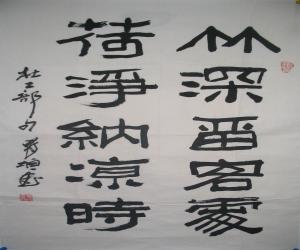 竹深留客處
荷淨納涼時
杜工部句